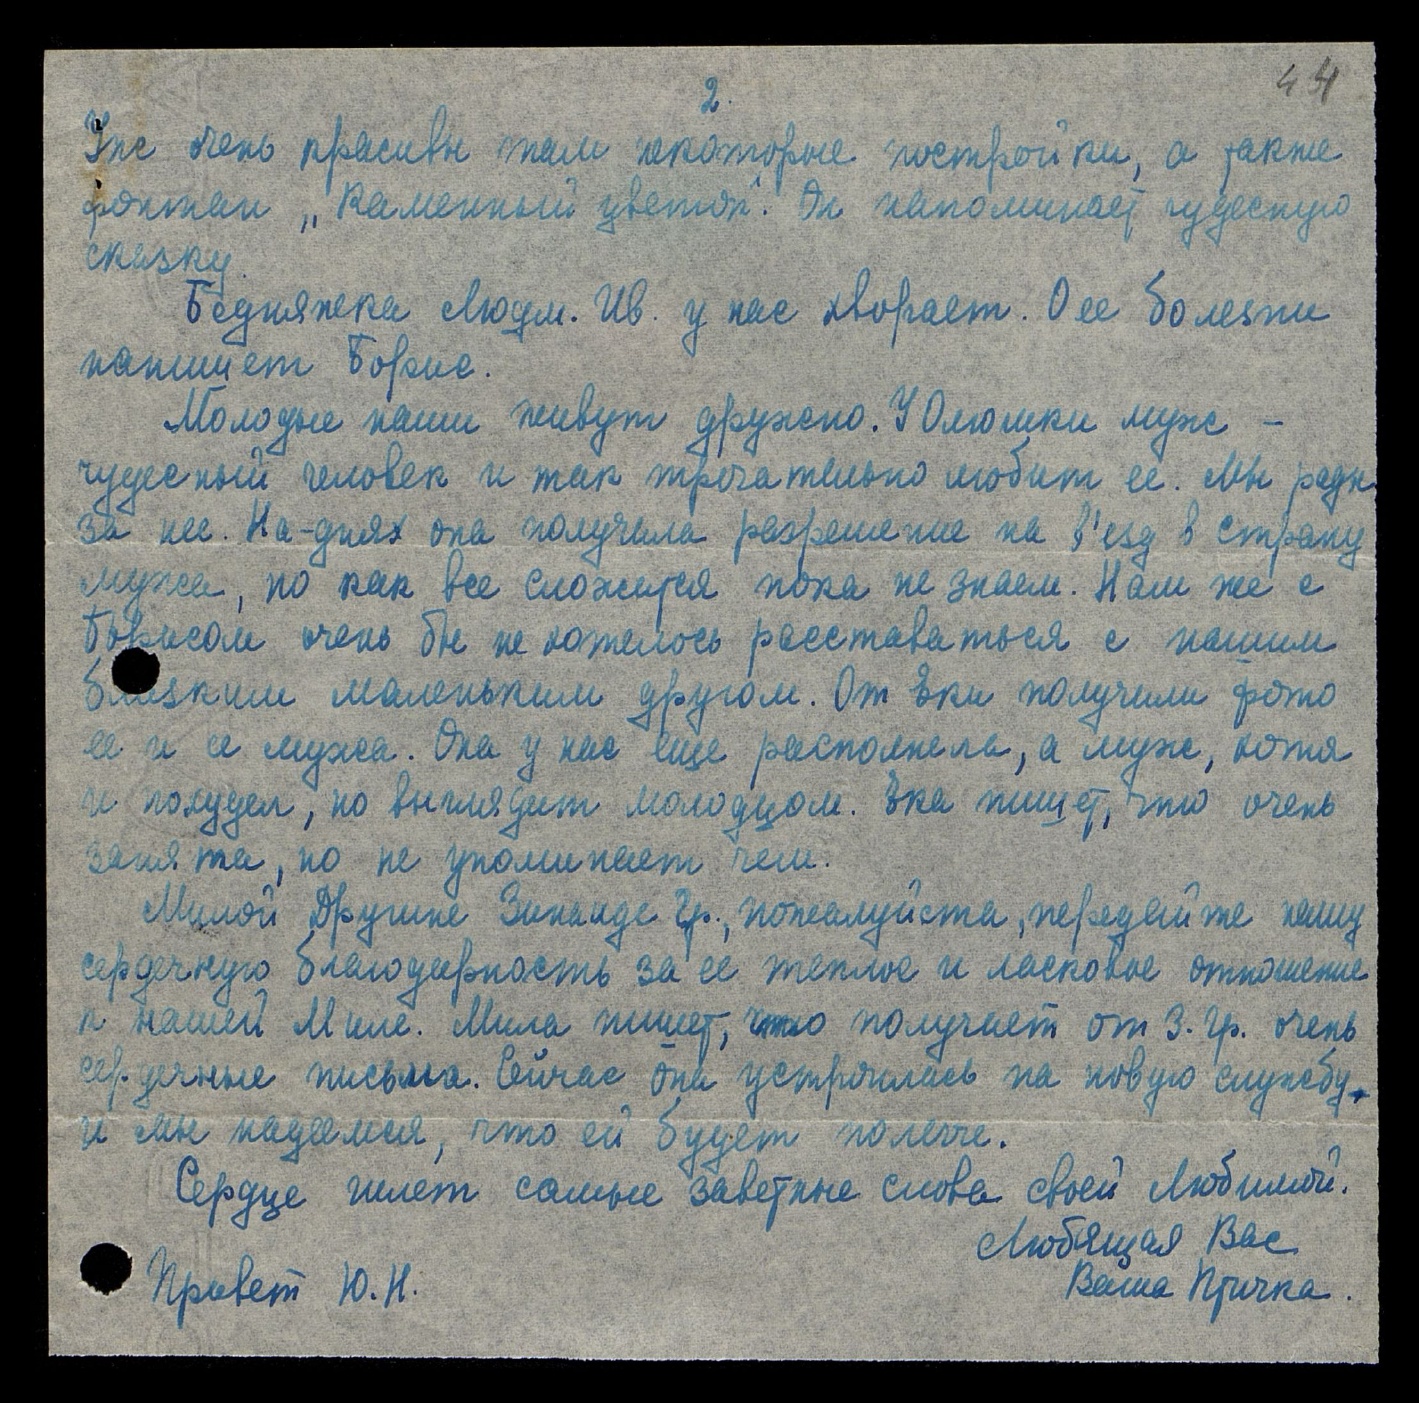 2.
44
Уже очень красивы там некоторые постройки, а также
фонтан „Каменный цветок". Он напоминает чудесную
сказку.
Бедняжка Людм. Ив. у нас хворает. О ее болезни
напишет Борис.
Молодые наши живут дружно. У Олюшки муж –
чудесный человек и так трогательно любит ее. Мы рады
за нее. На-днях она получила разрешение на в'езд в страну
мужа, но как все сложится пока не знаем. Нам же с
Борисом очень бы не хотелось расставаться с нашим
близким маленьким другом. От Эки получили фото
ее и ее мужа. Она у нас еще располнела, а муж, хотя
и похудел, но выглядит молодцом. Эка пишет, что очень
занята, но не упоминает чем.
Милой Другине Зинаиде Гр., пожалуйста, передайте нашу
сердечную благодарность за ее теплое и ласковое отношение
к нашей Миле. Мила пишет, что получает от З. Гр. очень
сердечные письма. Сейчас она устроилась на новую службу,
и мы надеемся, что ей будет полегче.
Сердце шлет самые заветные слова своей Любимой.
Любящая Вас
Ваша Птичка.
Привет Ю.Н.